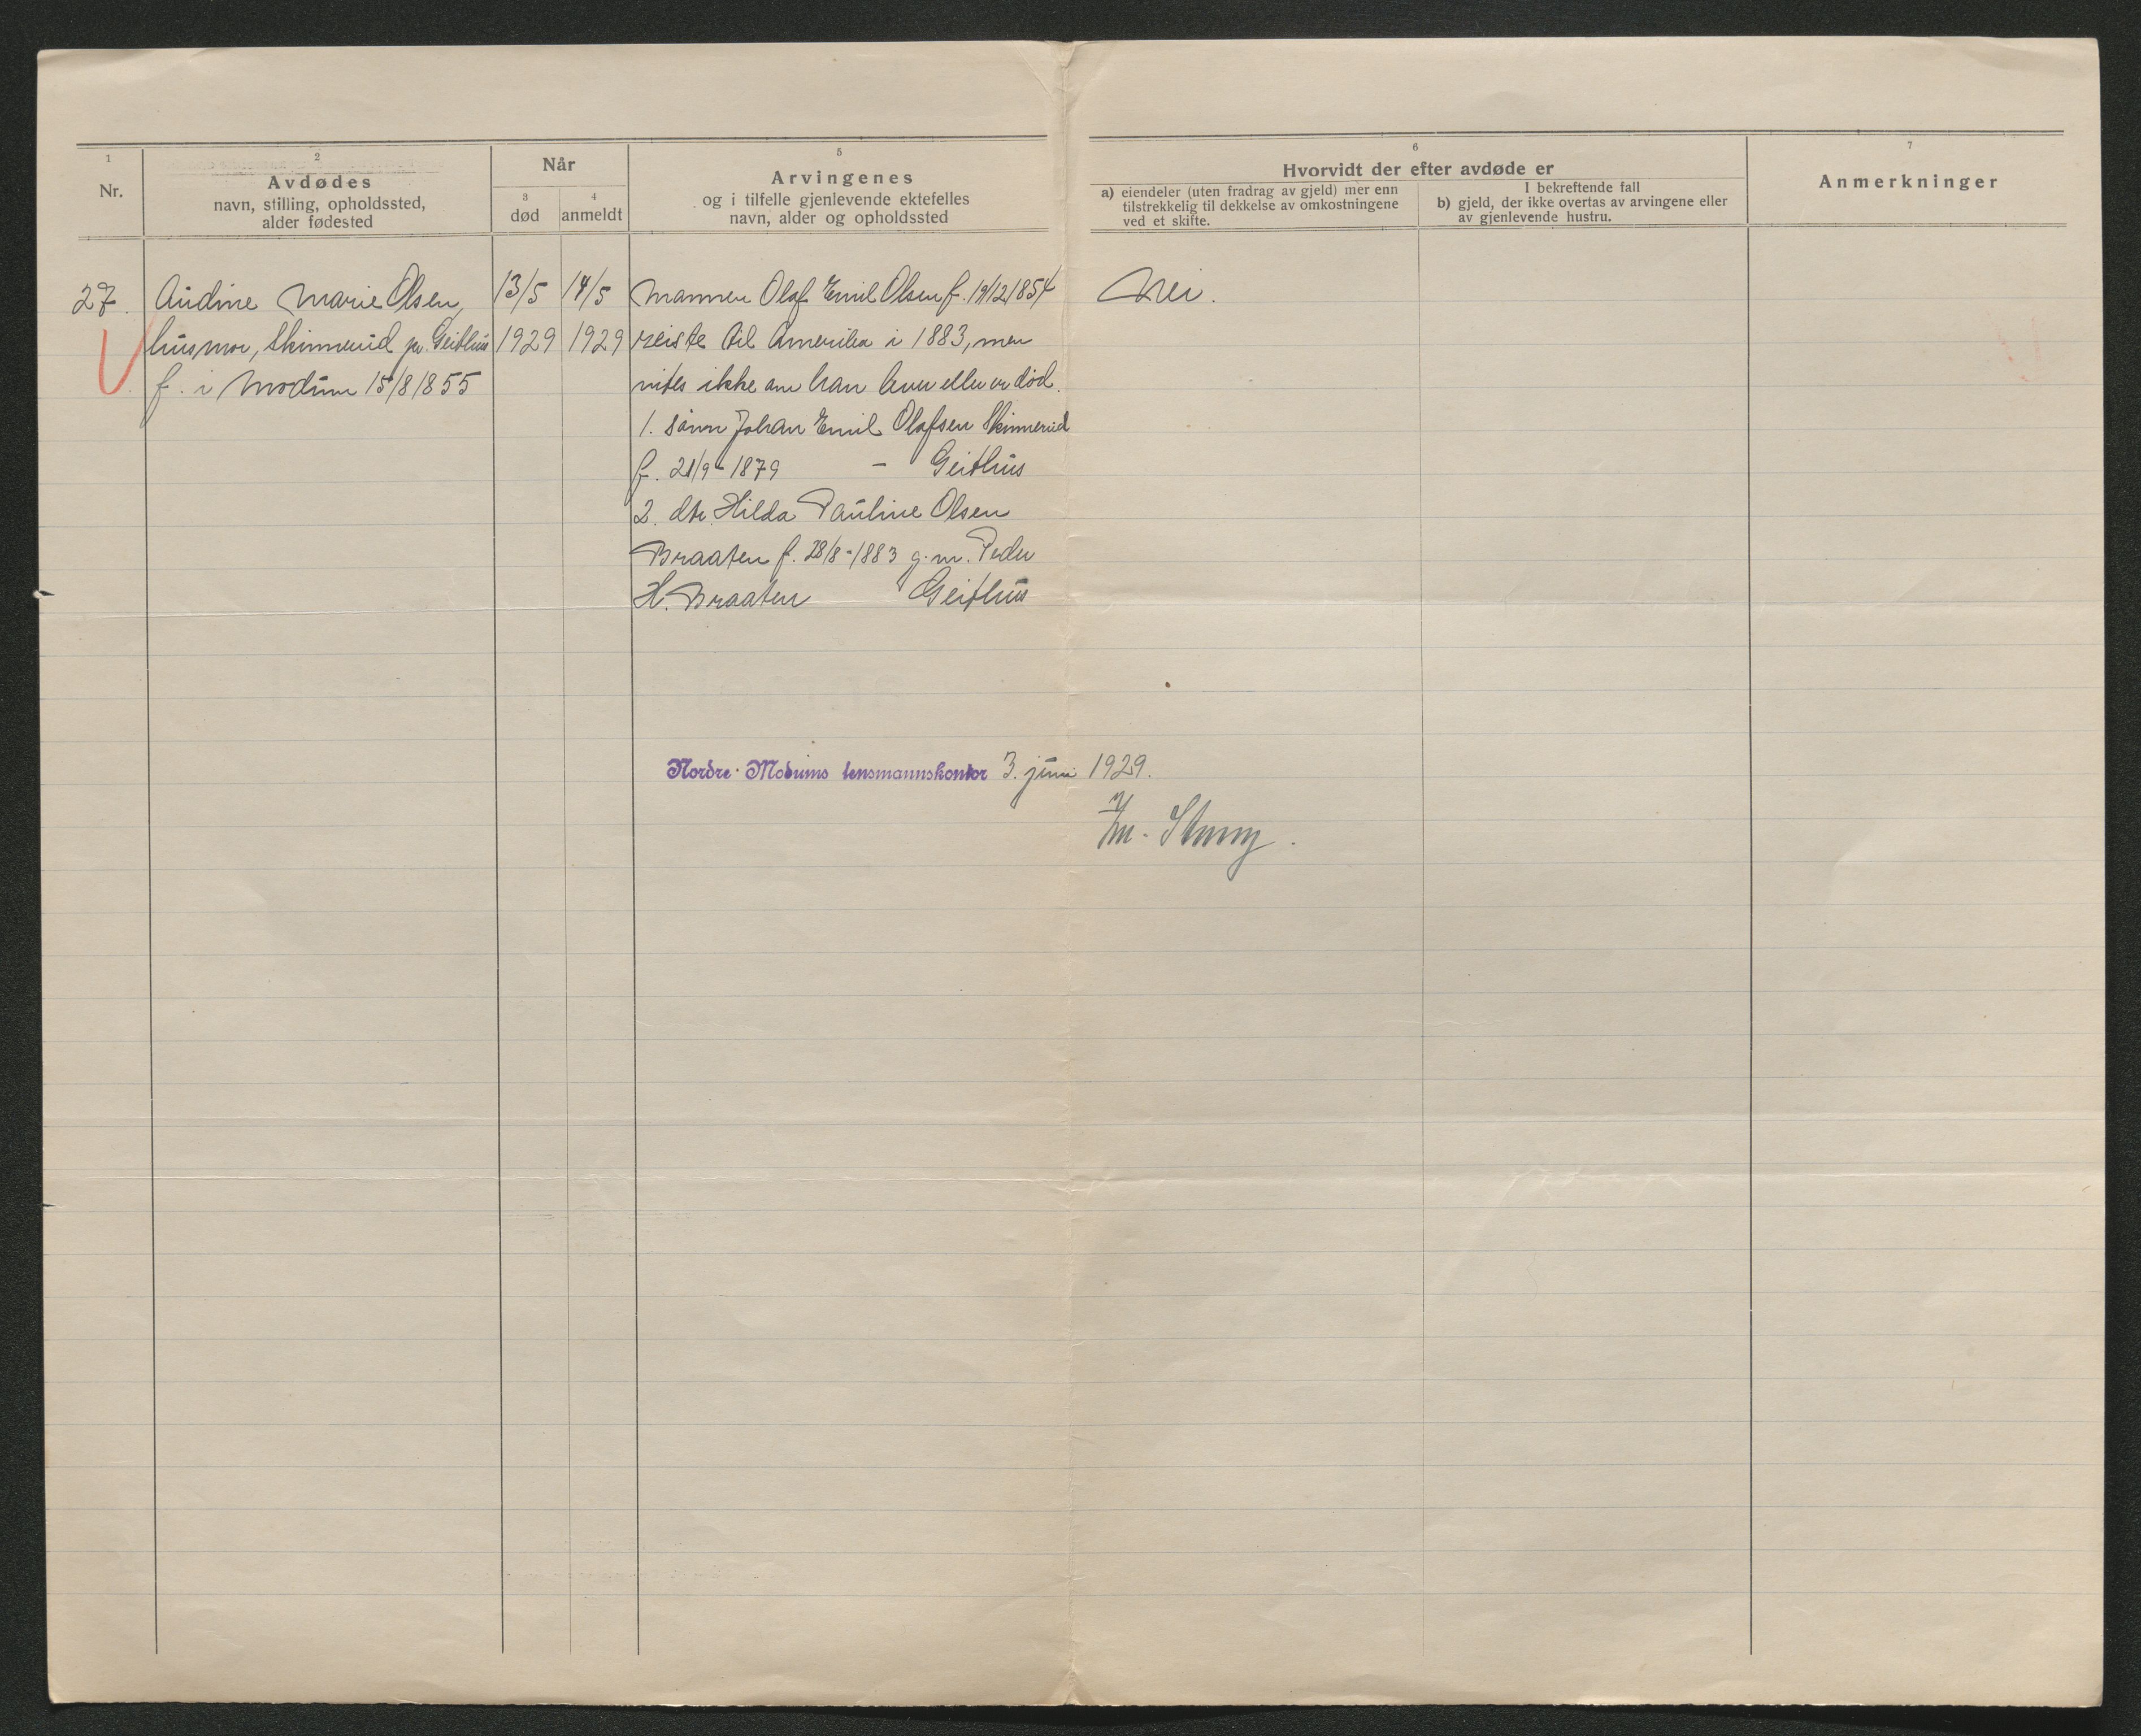 1
Nr.
2
Avdødes
navn, stilling, opholdssted,
alder fødested
Når
3
død
4
anmeldt
5
Arvingenes
og i tilfelle gjenlevende ektefelles
navn, alder og opholdssted
6
Hvorvidt der efter avdøde er
a) eiendeler (uten fradrag av gjeld) mer enn
tilstrekkelig til dekkelse av omkostningene
ved et skifte.
I bekreftende fall
b) gjeld, der ikke overtas av arvingene eller
av gjenlevende hustru.
7
Anmerkninger
27.
Audine Marie Olsen,
husmor, Skinnerud pr. Geithus
f. i Modum 15/8 1855
13/5
1929
14/5
1929
Mannen Olaf Emil Olsen f. 19/12 1854
reiste til Amerika i 1883, men
vites ikke om han lever eller er død.
1. sønn Johan Emil Olafsen Skinnerud
f. 21/9-1879 - Geithus
2. dtr. Hilda Pauline Olsen
Braaten f. 28/8-1883 g.m. Peder
H. Braaten Geithus
Nei.
Nordre Modums lensmannskontor 3. juni 1929.